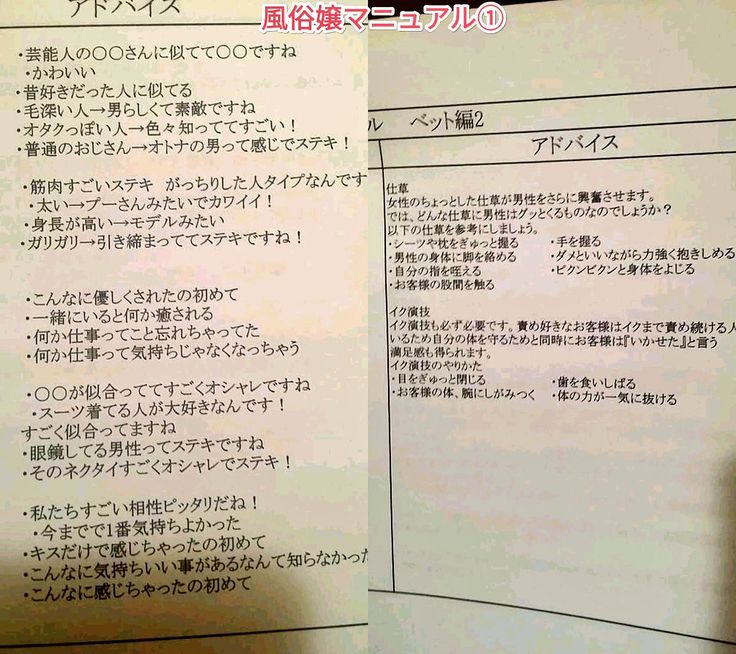 風俗嬢マニュアル①
アドバイス
・芸能人の〇〇さんに似てて〇〇ですね
・かわいい
・昔好きだった人に似てる
・毛深い人→男らしくて素敵ですね
・オタクっぽい人→色々知っててすごい！
・普通のおじさん→オトナの男って感じでステキ！
・筋肉すごいステキ　がっちりした人タイプなんです
・太い→プーさんみたいでカワイイ！
・身長が高い→モデルみたい
・ガリガリ→引き締まっててステキですね！
・こんなに優しくされたの初めて
・一緒にいると何か癒される
・何か仕事ってこと忘れちゃってた
・何か仕事って気持ちじゃなくなっちゃう
・〇〇が似合っててすごくオシャレですね
・スーツ着てる人が大好きなんです！
すごく似合ってますね
・眼鏡してる男性ってステキですね
・そのネクタイすごくオシャレでステキ！
・私たちすごい相性ピッタリだね！
・今までで1番気持ちよかった
・キスだけで感じちゃったの初めて
・こんなに気持ちいい事があるなんて知らなかった
・こんなに感じちゃったの初めて
ル　ベット編2
アドバイス
仕草
女性のちょっとした仕草が男性をさらに興奮させます。
では、どんな仕草に男性はグッとくるものなのでしょうか？
以下の仕草を参考にしましょう。
・シーツや枕をぎゅっと握る　・手を握る
・男性の身体に脚を絡める　・ダメといいながら力強く抱きしめる
・自分の指を咥える　・ビクンビクンと身体をよじる
・お客様の股間を触る
イク演技
イク演技も必ず必要です。責め好きなお客様はイクまで責め続ける人
いるため自分の体を守るためと同時にお客様は『いかせた』と言う
満足感も得られます。
イク演技のやりかた
・目をぎゅっと閉じる　・歯を食いしばる
・お客様の体、腕にしがみつく　・体の力が一気に抜ける